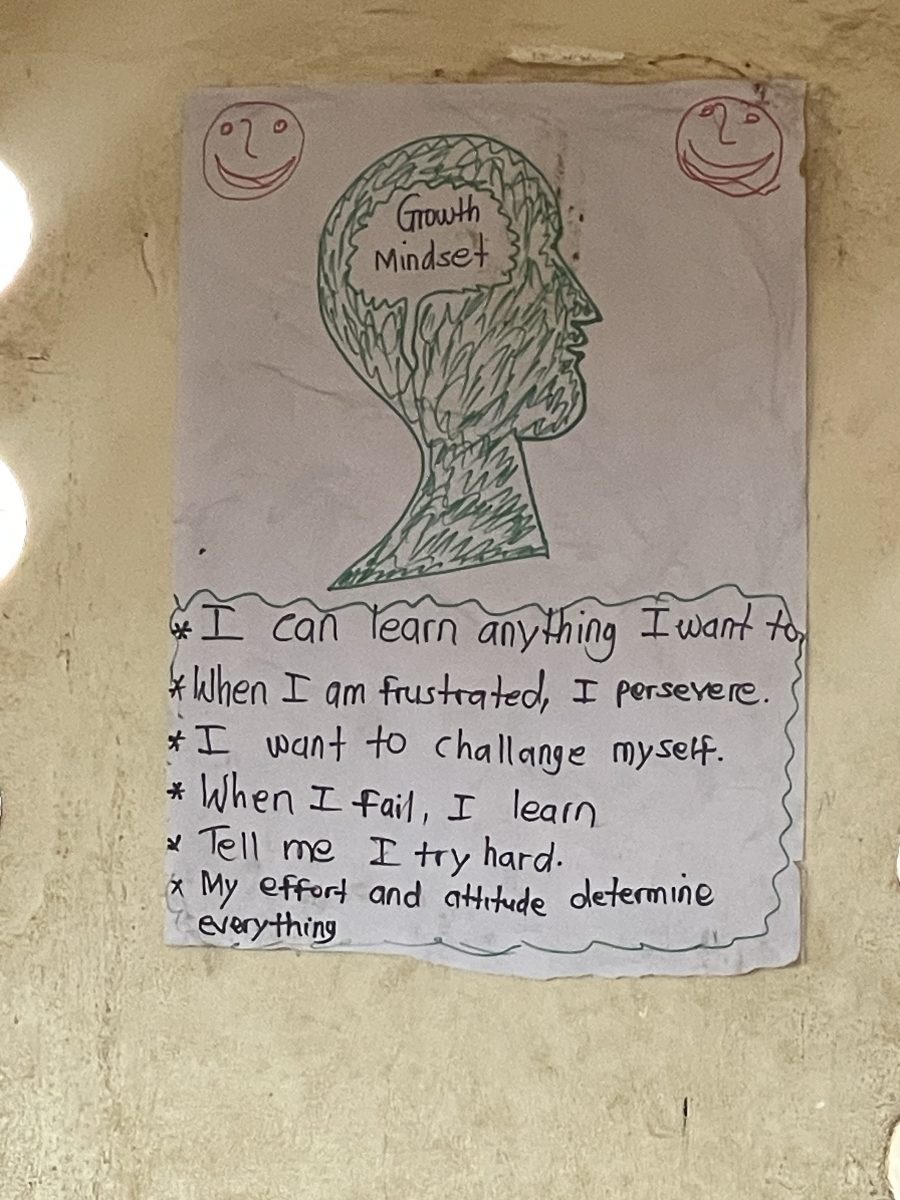 Growth
Mindset
* I can learn anything I want to,
* When I am frustrated, I persevere.
* I want to challange myself.
* When I fail, I learn
* Tell me I try hard.
* My effort and attitude determine
everything